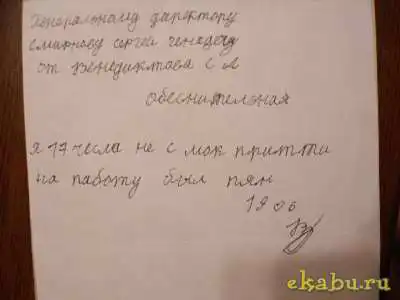 Генеральному директору
смирнову сергей генадеву
От Венедиктова С А
обеснительная
я 17 чесла не с мок притти
на работу был пян
19 06
ekabu.ru